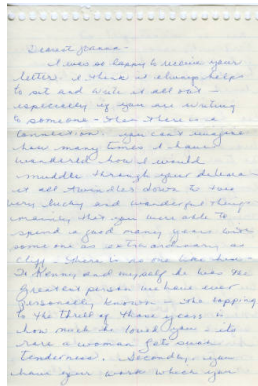 Dearest Joanna -
I was so happy to receive your
letter. I think it always helps
to sit and write it all out -
especially if you are writing
to someone - then there is a
connection. You can't imagine
how many times I have
wondered how I would
muddle through your dilemma -
it all dwindles down to two
very lucky and wonderful things -
mainly that you were able to
spend a good many years with
someone as extraordinary as
Cliff - there is no one like him -
To Kenny and myself he was the
greatest person we have ever
personally known - the topping
to the thrill of those years is
how much he loved you - its
rare a woman gets such
tenderness. Secondly, you
have your work which you